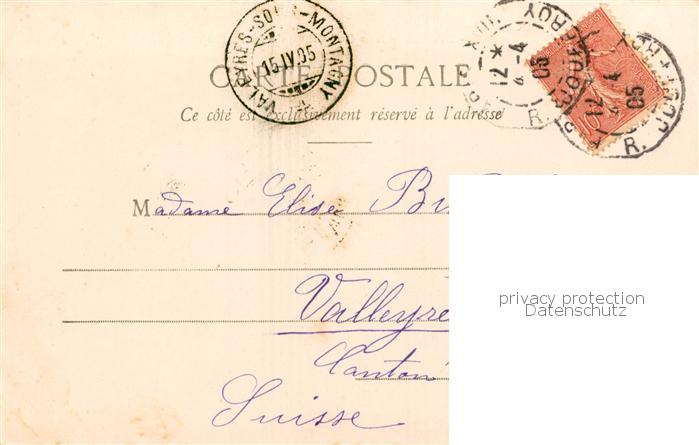 VALEYRES-SOUS-MONTAGNY
15.IV.05
CARTE POSTALE
Ce côté est exclusivement réservé à l'adresse
12
4
05
12
4
05
R.
Madame Elise
privacy protection
Datenschutz
Valleyre
Canton
Suisse